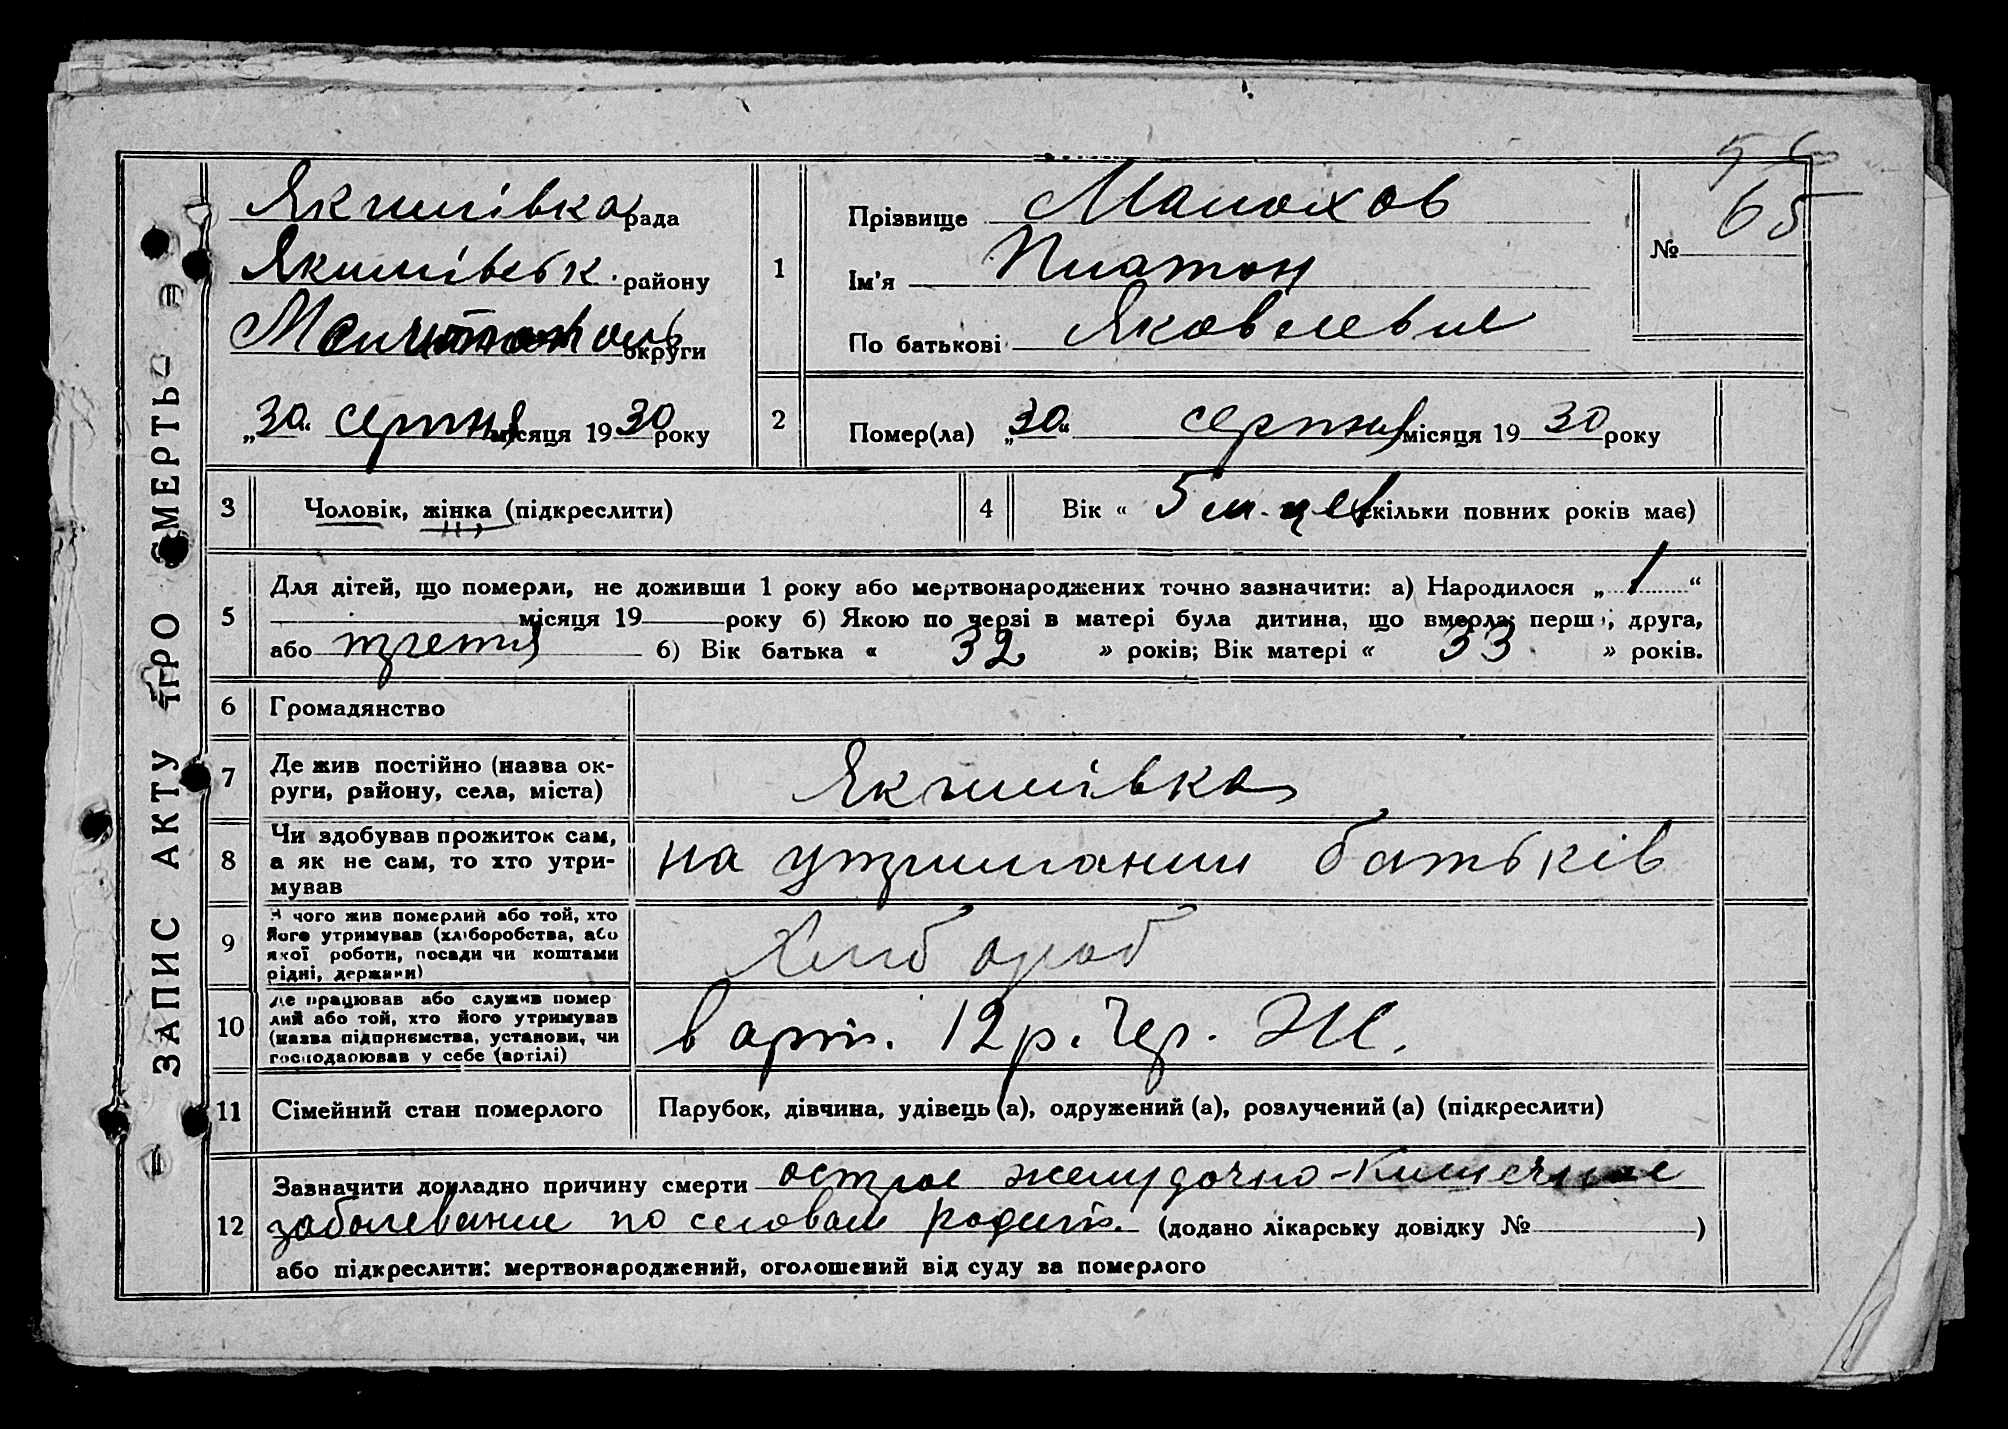 ЗАПИС АКТУ ПРО СМЕРТЬ
56
Якимівка рада
Якимівськ. району
округи
„30“ серпня місяця 1930 року
1
Прізвище Малахов
Ім'я Платон
По батькові Яковлевич
№ 65
2
Помер(ла) „30“ серпня місяця 1930 року
3 Чоловік, жінка (підкреслити)
4 Вік « 5 м-цев скільки повних років має)
5
Для дітей, що померли, не доживши 1 року або мертвонароджених точно зазначити: а) Народилося „ 1 “
місяця 19 року б) Якою по черзі в матері була дитина, що вмерла: перш , друга,
або третя 6) Вік батька « 32 » років; Вік матері « 33 » років.
6 Громадянство
7 Де жив постійно (назва ок-
руги, району, села, міста)
Якимівка
8 Чи здобував прожиток сам,
а як не сам, то хто утри-
мував
на утримании батьків
9 З чого жив померлий або той, хто
його утримував (хліборобства, або
якої роботи, посади чи коштами
рідні, держави)
Хлібороб
10 Де працював або служив помер
лий або той, хто його утримував
(назва підприємства, установи, чи
господарював у себе (артілі)
в арт. 12 р. Чер.
11 Сімейний стан померлого
Парубок, дівчина, удівець (а), одружений (а), розлучений (а) (підкреслити)
12
Зазначити докладно причину смерти острое желудочно-кишечное
заболевание по словам родит. (додано лікарську довідку № )
або підкреслити: мертвонароджений, оголошений від суду за померлого